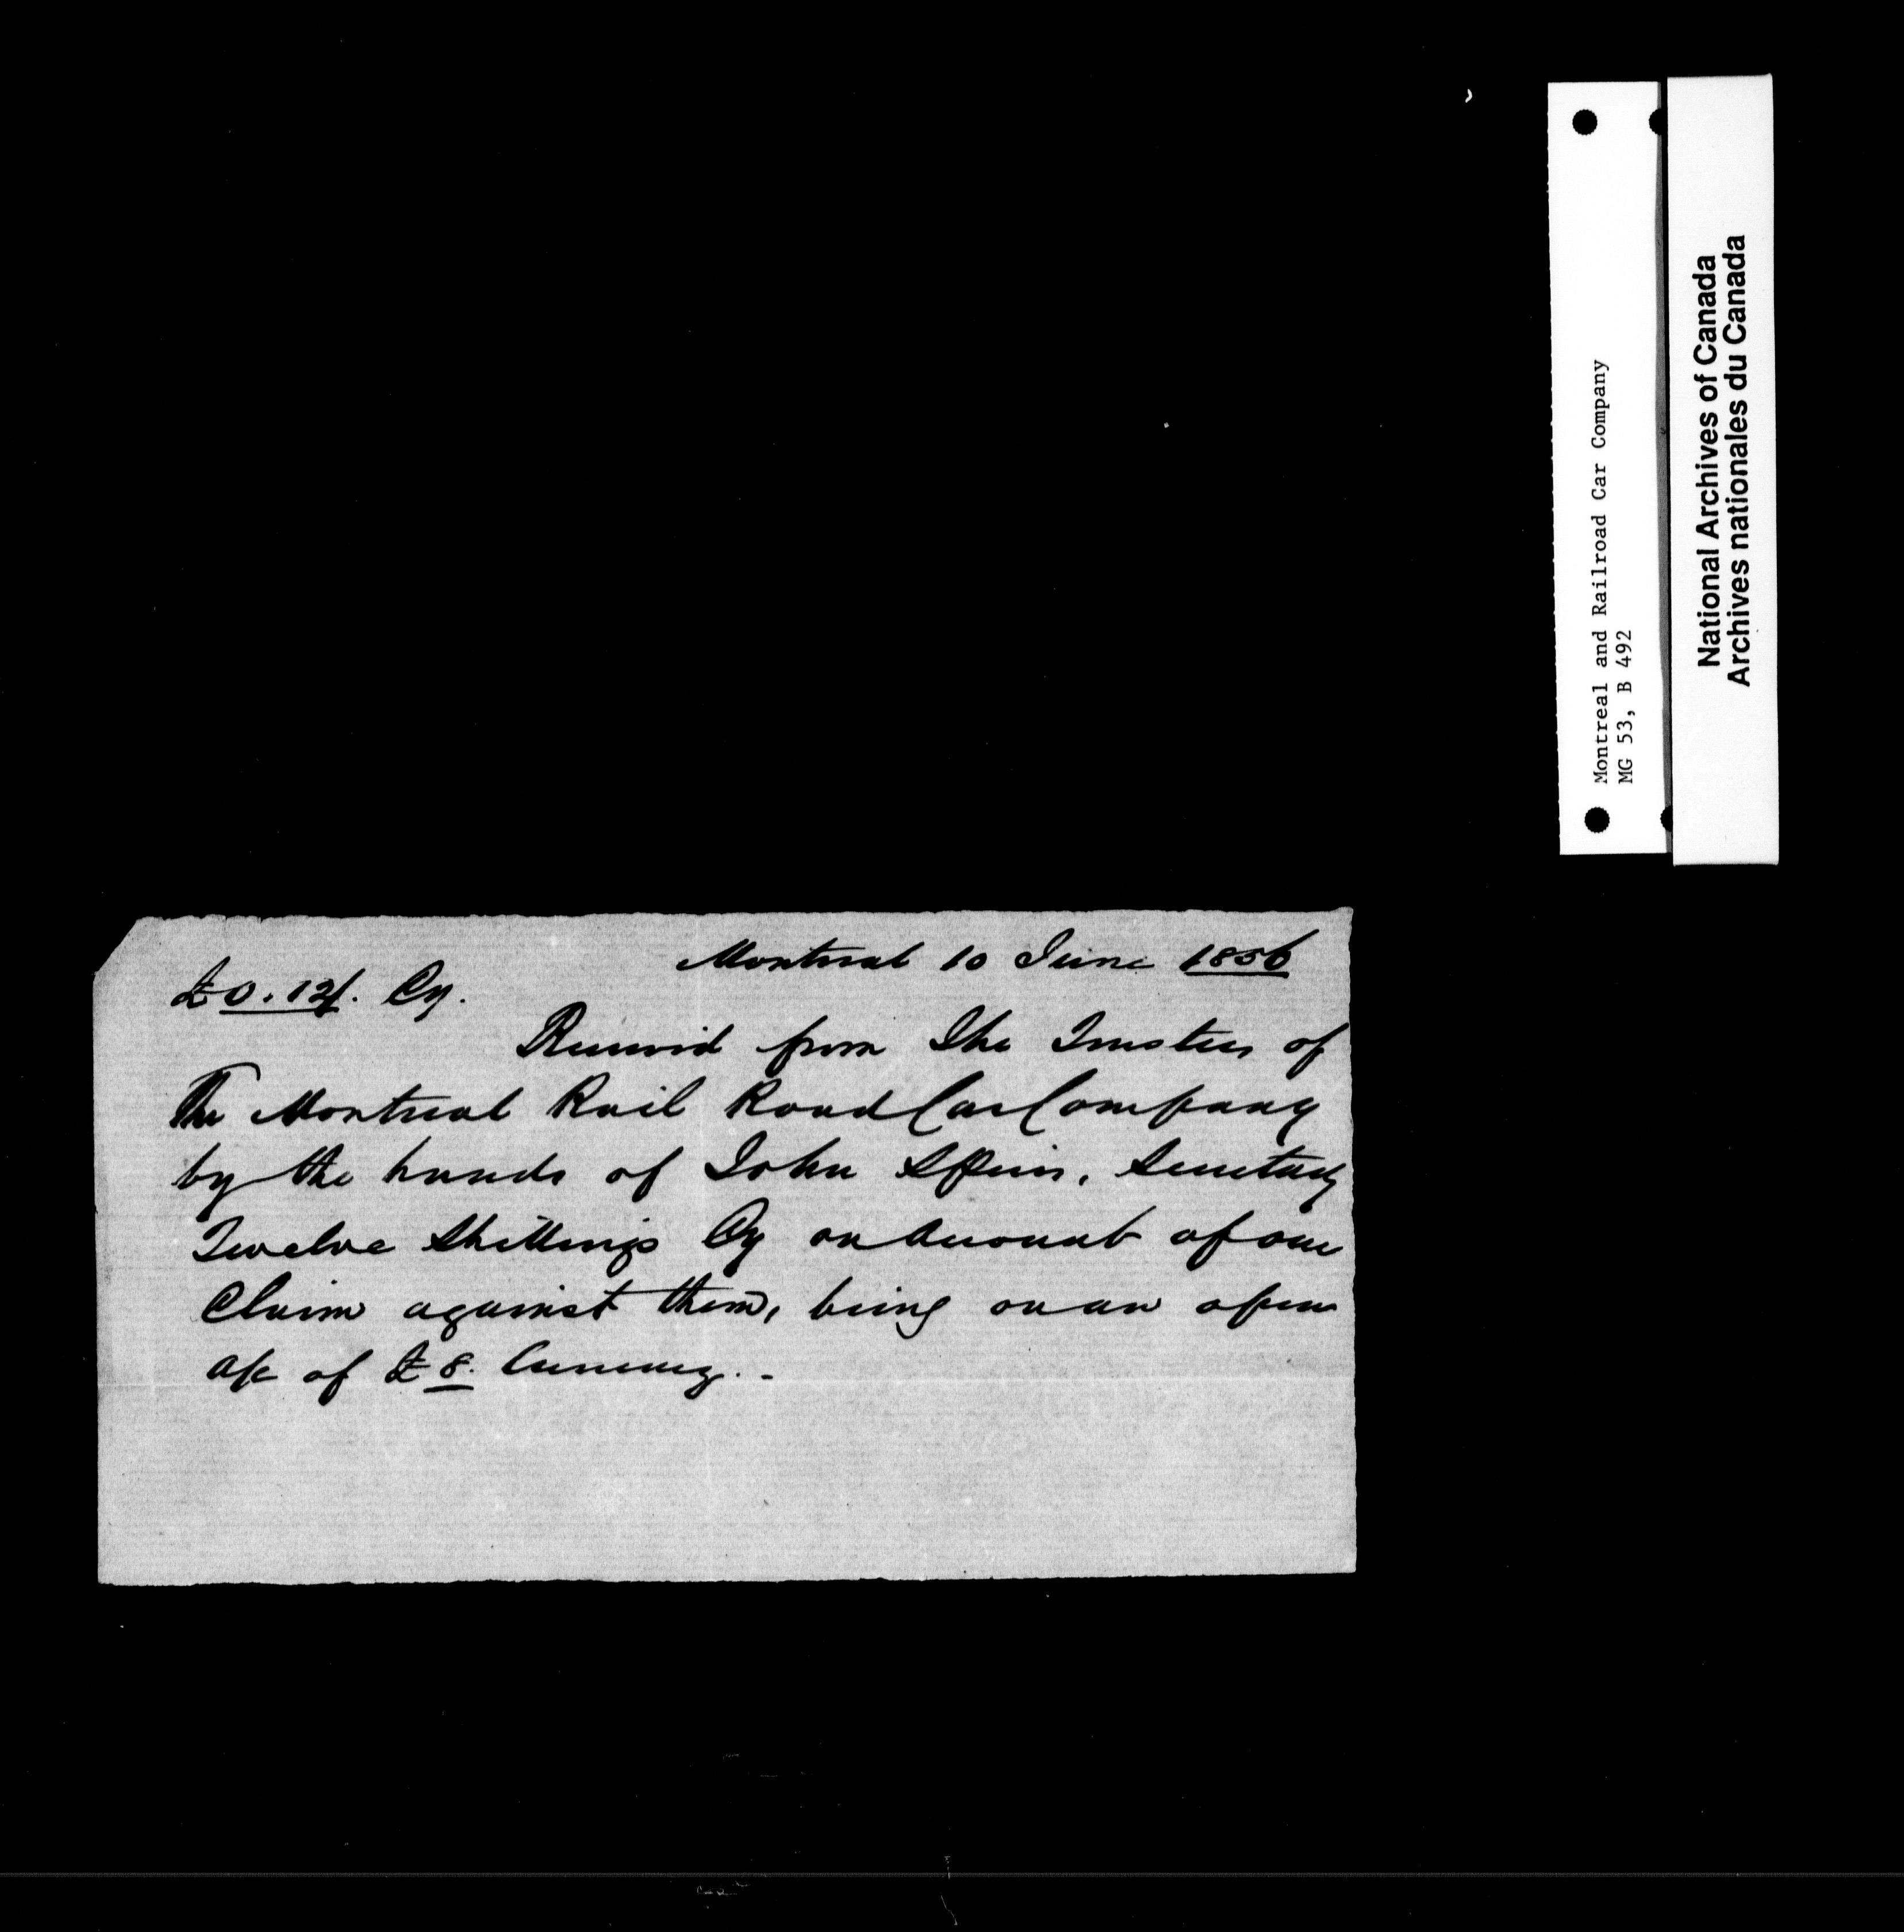 Montreal 10 June 1856
£0.12/. Cy.
Received from The Trustees of
The Montreal Rail Road Car Company
by the hands of John Secretary
Twelve Shillings Cy on Account of our
Claim against them, being on an open
a/c of £8. Currency..
Montreal and Railroad Car Company
MG 53, B 492
National Archives of Canada
Archives nationales du Canada